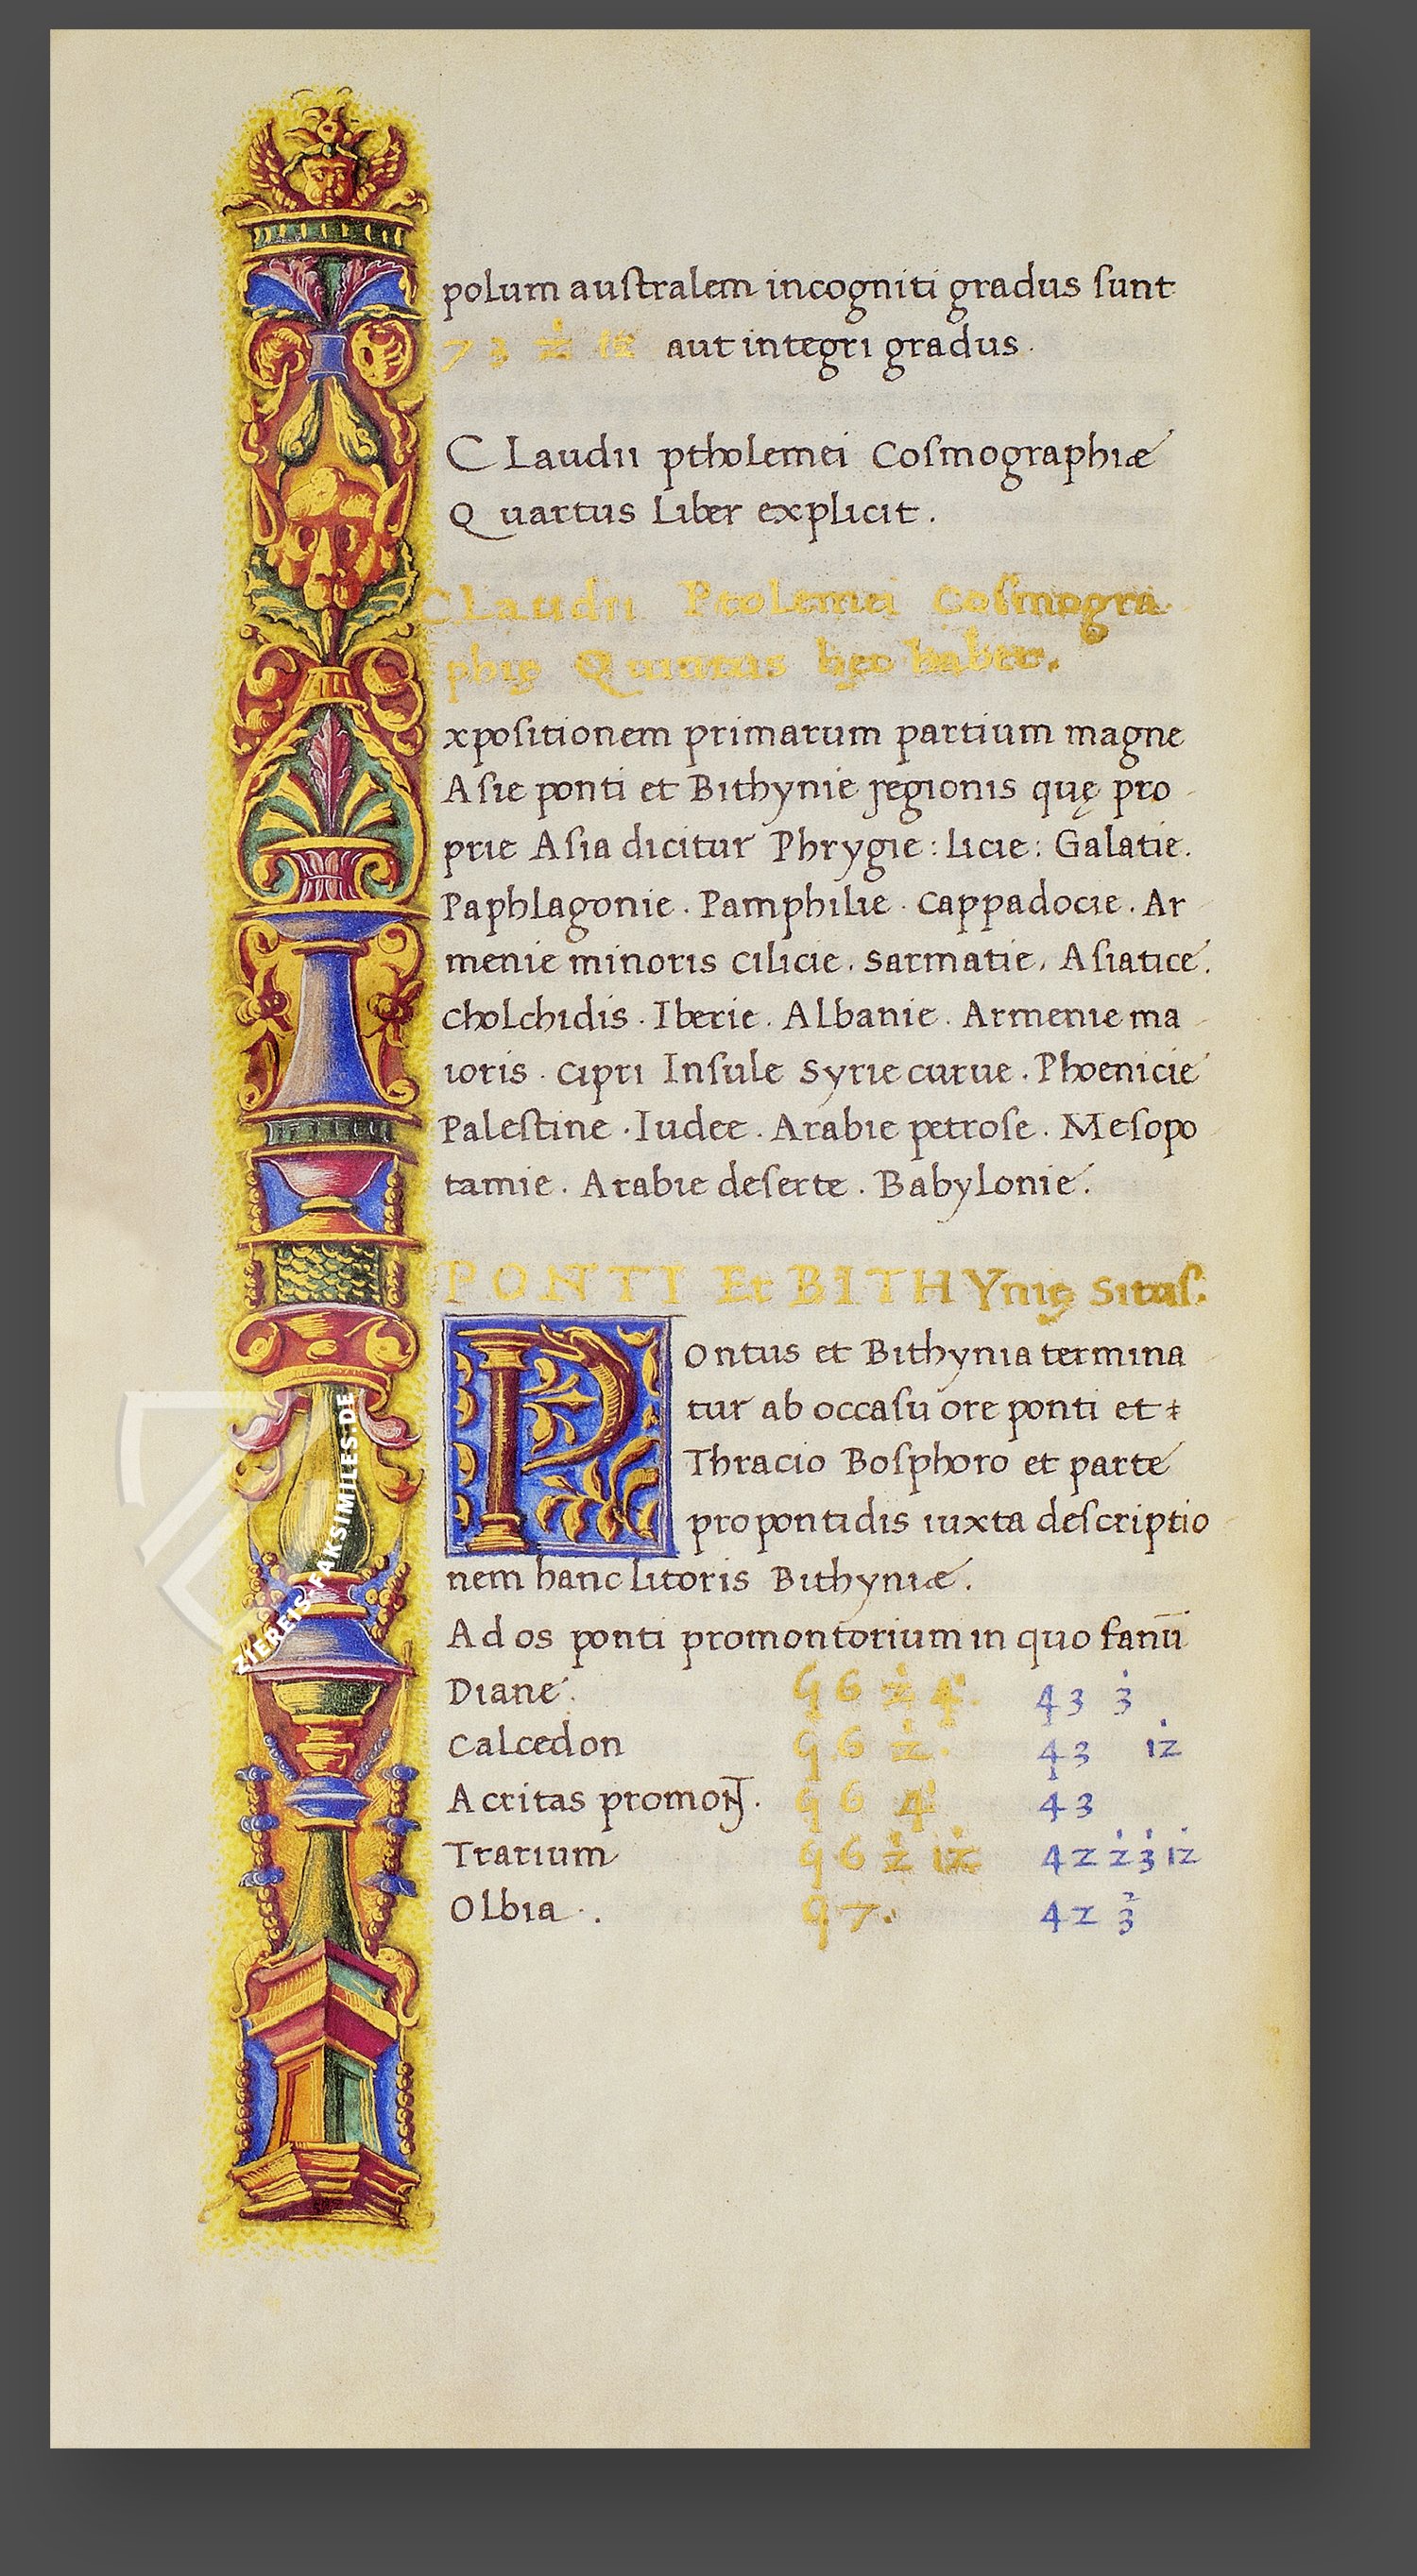 polum auſtralem incogniti gradus ſunt
7 3 aut integri gradus.
CLaudii ptholemei Coſmographiæ
Quartus Liber explicit.
CLaudii Ptolemei Coſmogra
phię Quintus hęc habet.
xpoſitionem primarum partium magne
Aſie ponti et Bithynie regionis quę pro
prie Aſia dicitur Phrygie: Licie: Galatie.
Paphlagonie. Pamphilie. Cappadocie. Ar
menie minoris Cilicie. Sarmatie. Aſiatice.
Cholchidis. Iberie. Albanie. Armenie ma
ioris. Cipri Inſule Syrie curue. Phoenicie
Paleſtine. Iudee. Arabie petroſe. Meſopo
tamie. Arabie deſerte. Babylonie.
PONTI Et BITHYnię Situſ.
Pontus et Bithynia termina
tur ab occaſu ore ponti et
Thracio Boſphoro et parte
propontidis iuxta deſcriptio
nem hanc litoris Bithyniæ.
Ad os ponti promontorium in quo fanū
Diane. 96 2̇ 4̇. 43 3̇
Calcedon 96 2̇. 43 1̇2
Acritas promon̄. 96 4̇ 43
Trarium 96 2̇ 12̇ 42 2̇ 3̇ 12̇
Olbia. 97. 42 ⅔
ZIEREIS-FAKSIMILES.DE